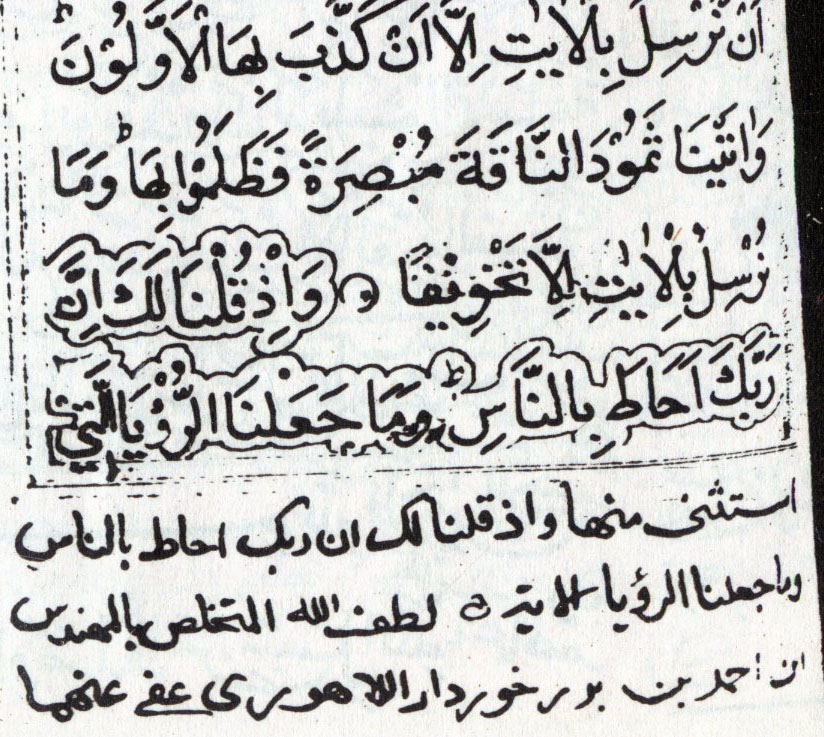 اَنْ نُّرْسِلَ بِالْاٰیٰتِ اِلَّاۤ اَنْ كَذَّبَ بِهَا الْاَوَّلُوْنَ ؕ
وَاٰتَیْنَا ثَمُوْدَ النَّاقَةَ مُبْصِرَةً فَظَلَمُوْا بِهَا ؕ وَمَا
نُرْسِلُ بِالْاٰیٰتِ اِلَّا تَخْوِیْفًا ۝ وَاِذْ قُلْنَا لَكَ اِنَّ
رَبَّكَ اَحَاطَ بِالنَّاسِ ؕ وَمَا جَعَلْنَا الرُّؤْیَا الَّتِیْۤ
استثنی منها واذ قلنا لك ان ربك احاط بالناس
وما جعلنا الرؤيا الاية ۝ لطف الله المتخلص بالمهندس
ابن احمد بن برخوردار اللاهوری عفی عنهما